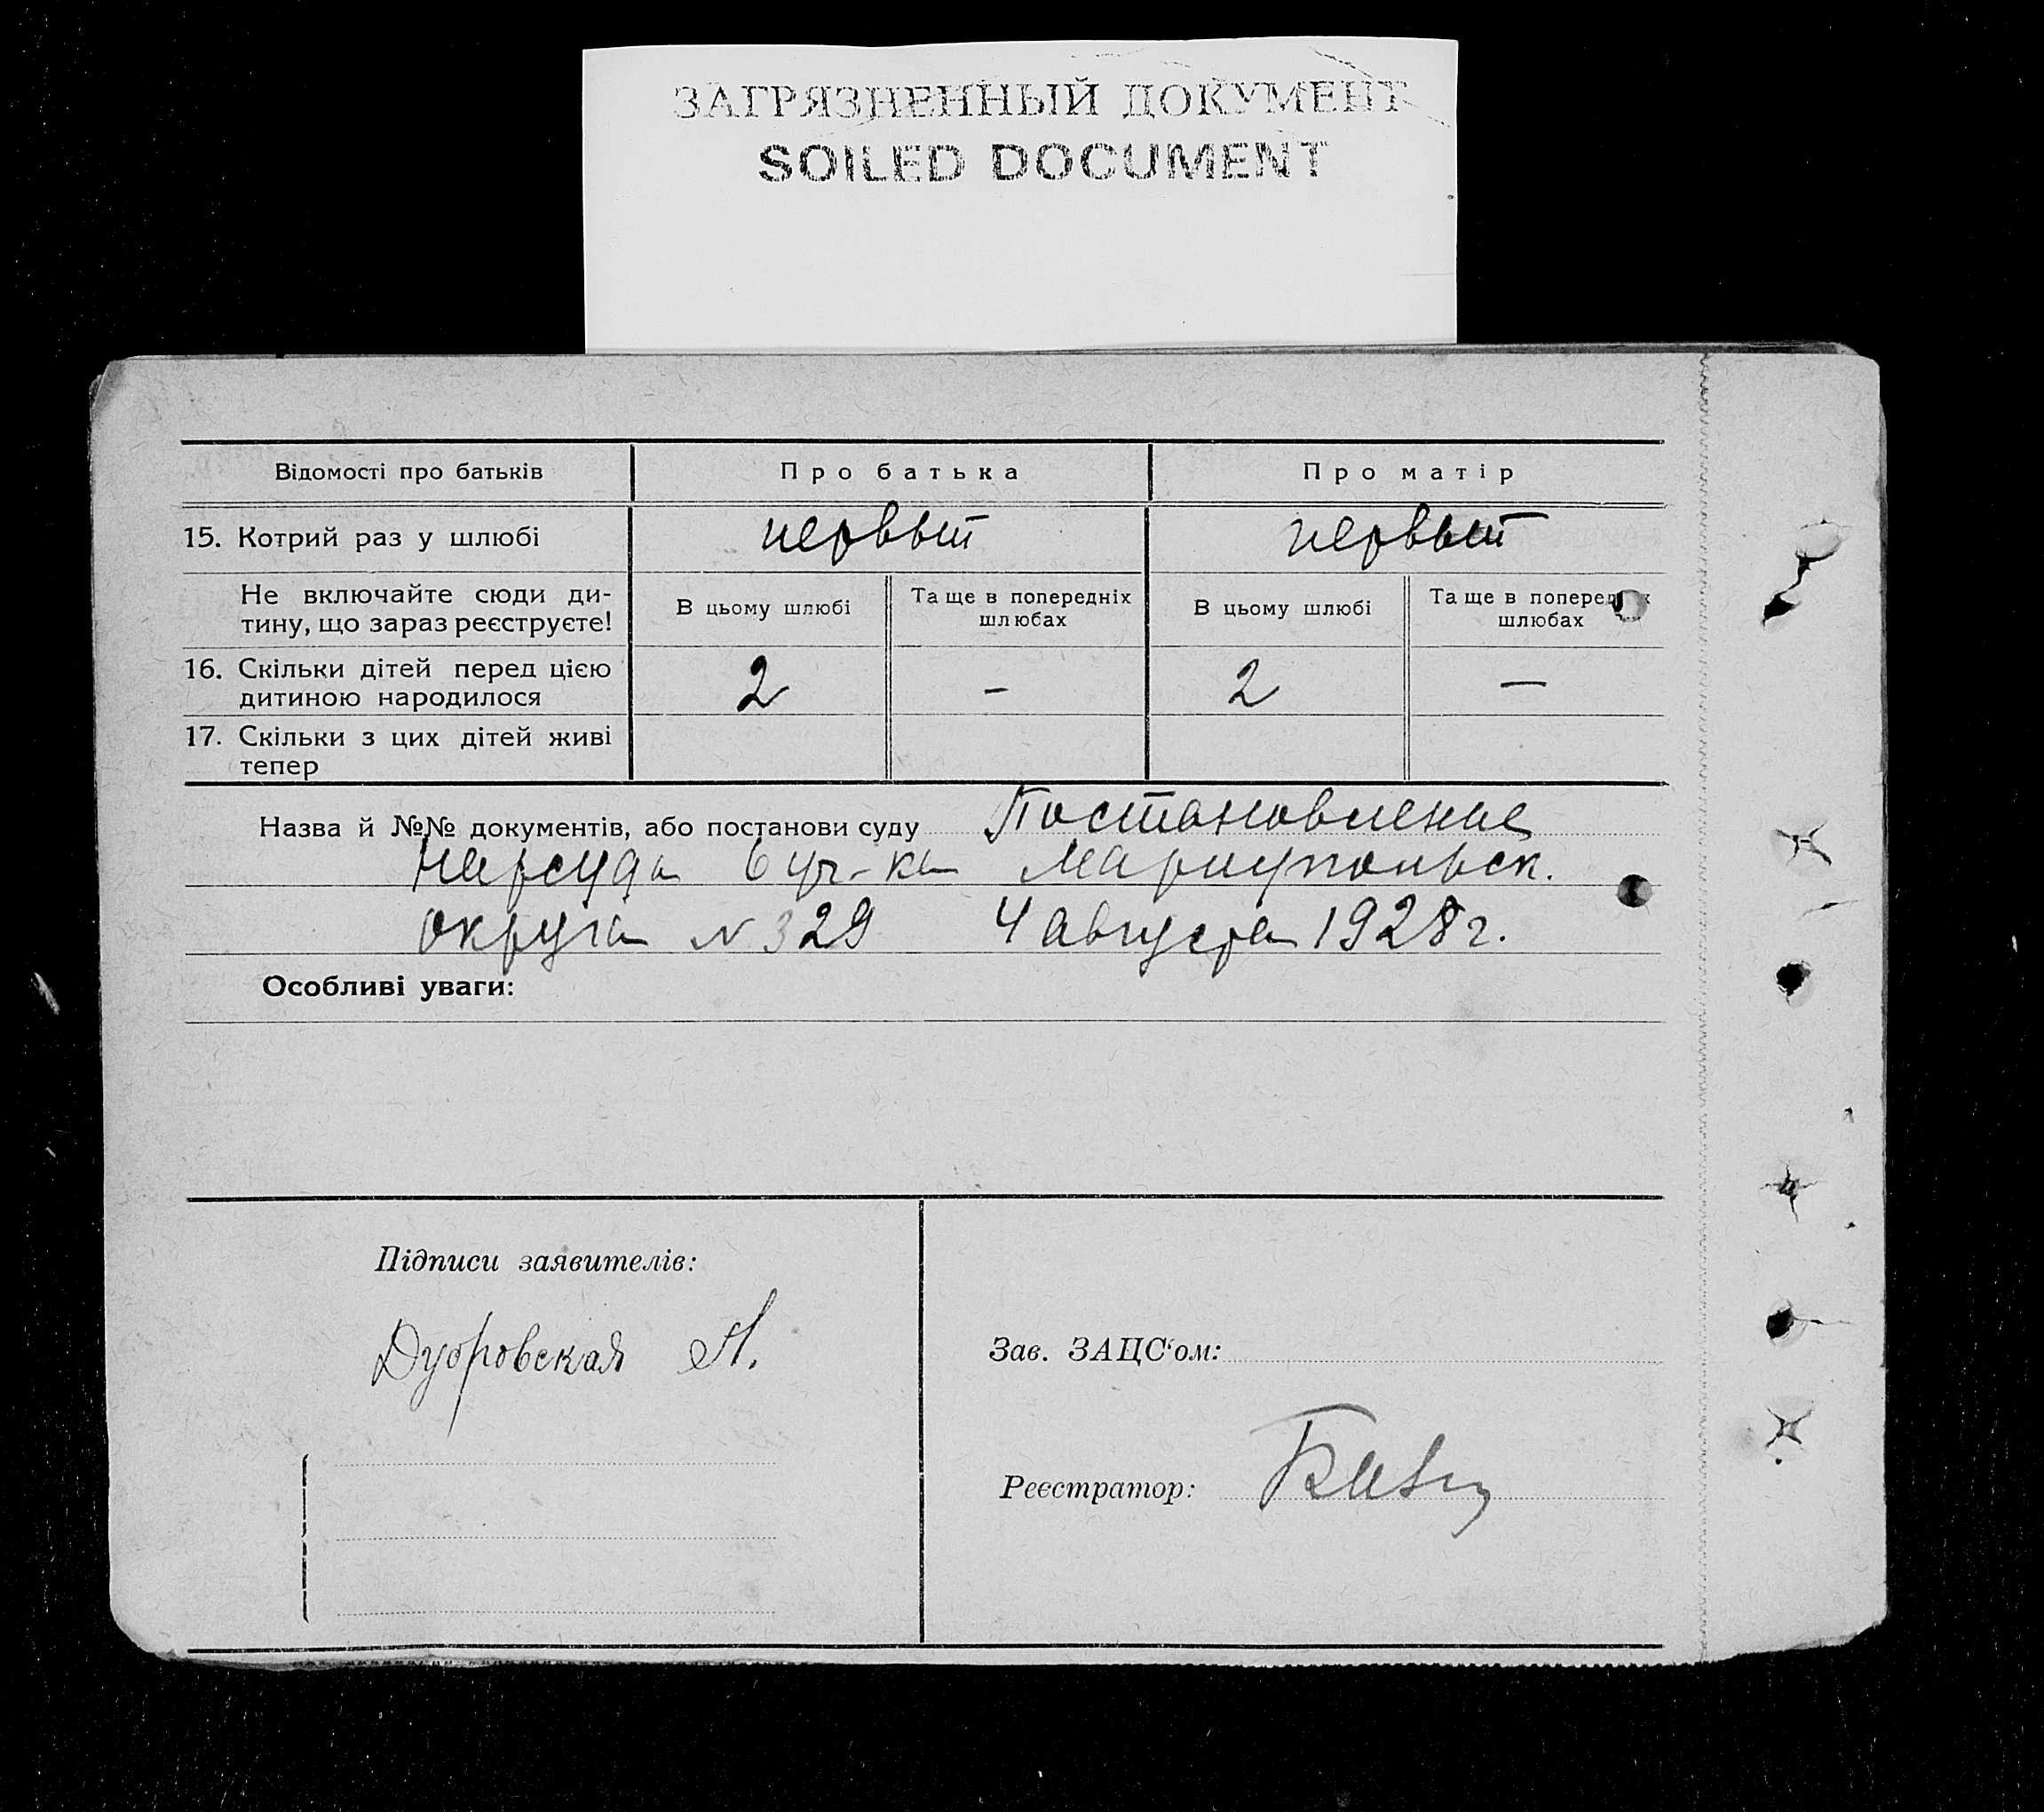 ЗАГРЯЗНЕННЫЙ ДОКУМЕНТ
SOILED DOCUMENT
Відомості про батьків Про батька Про матір
15. Котрий раз у шлюбі первый первый
Не включайте сюди ди-
тину, що зараз реєструєте!
В цьому шлюбі
Та ще в попередніх
шлюбах
В цьому шлюбі
Та ще в поперед х
шлюбах
16. Скільки дітей перед цією
дитиною народилося
2 – 2 —
17. Скільки з цих дітей живі
тепер
Назва й №№ документів, або постанови суду Постановление
Нарсуда 6 уч-ка Мариупольск.
округа N 329 4 августа 1928 г.
Особливі уваги:
Підписи заявителів:
Дубровская
Зав. ЗАЦС‘ом:
Реєстратор: